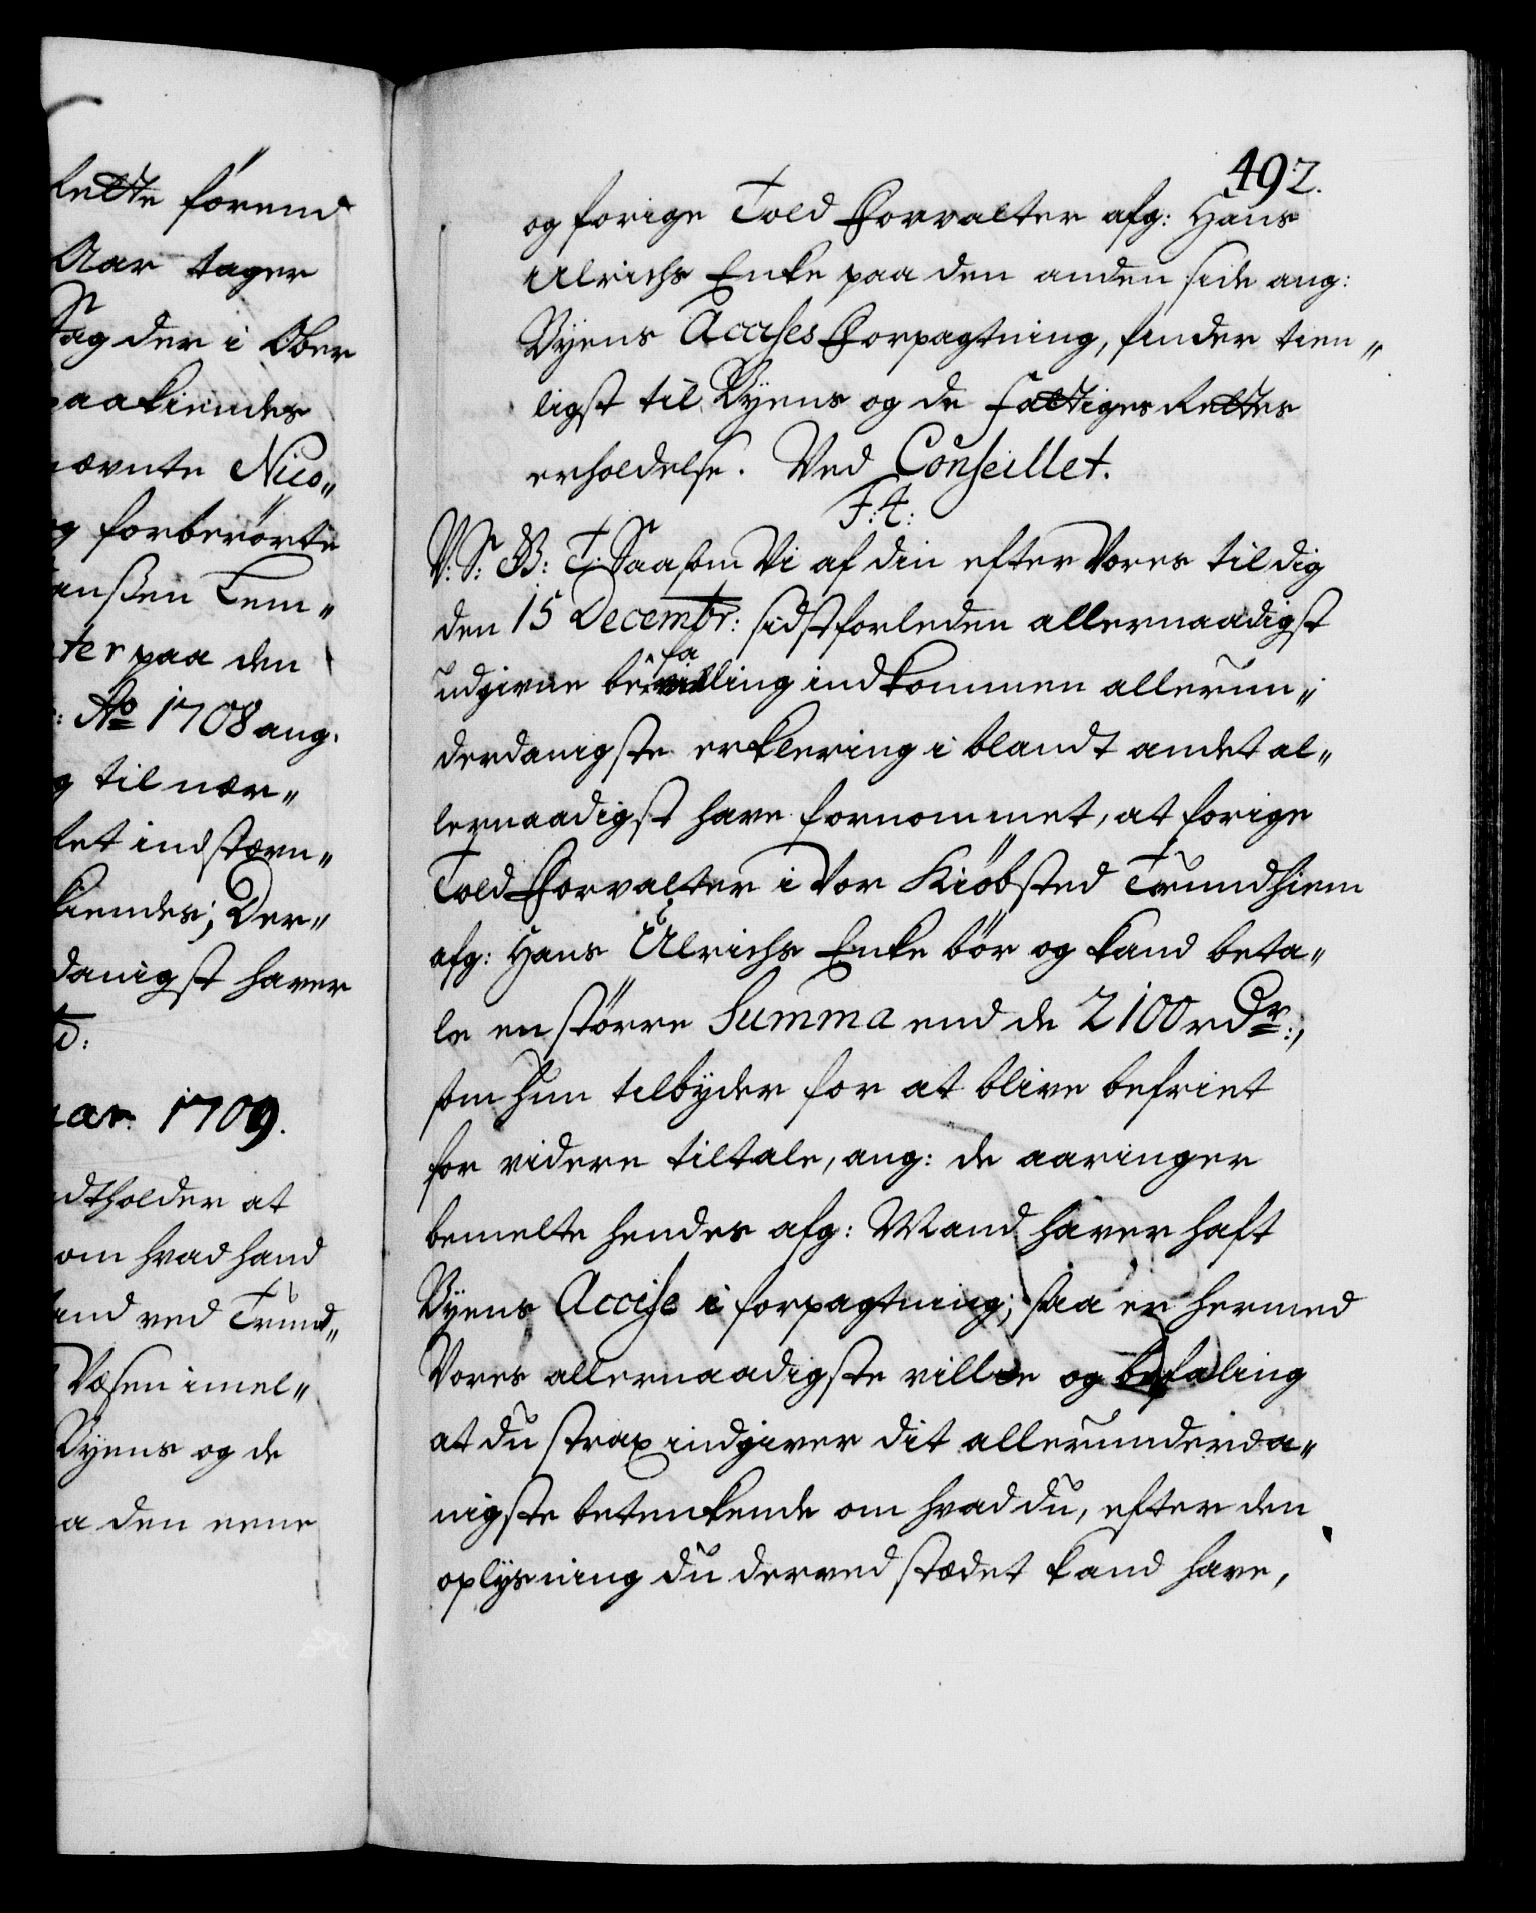 lette førend
Aar tager
Sag der i Ober
paakiendes
nævnte Nico„
og forberørte
ansen Lem„
ter paa den
: Ao 1708 ang.
g til nær„
let indstævn„
kiendes; Der„
danigst haver
d:
uar. 1709.
dtholder at
om hvad hand
and ved Trund„
Væsen imel„
Byens og de
a den eene
492.
og forige Told Forvalter afg: Hans
Ulrichs Enke paa den anden side ang:
Byens Accises Forpagtning, finder tien„
ligst til Byens og de fattiges Rettes
erholdelse. Ved Conseillet.
F: 4:
V: S: G B: T. Saasom Vi af din efter Vores til dig
den 15 Decembr: sidstforleden allernaadigst
udgivne befaling indkommen allerun„
derdanigste erklering i blandt andet al„
lernaadigst have fornommet, at forige
Told Forvalter i Vor Kiøbsted Trundhiem
afg: Hans Ulrichs Enke bør og kand beta„
le en større Summa end de 2100 rdr:,
som hun tilbyder for at blive befriet
for videre tiltale, ang: de aaringer
bemelte hendes afg: Mand haver haft
Byens Accise i forpagtning; saa er hermed
Vores allernaadigste villie og befaling
at du strax indgiver dit allerunderda„
nigste betenkende om hvad du, efter den
oplysning du derved stædet kand have,